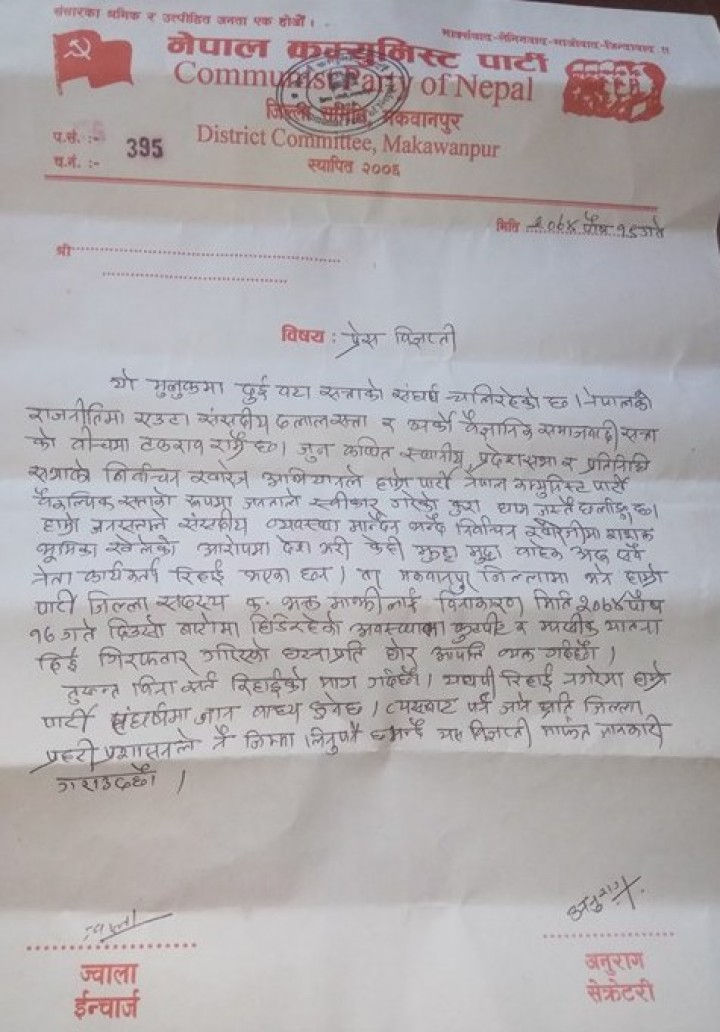 संसारका श्रमिक र उत्पीडित जनता एक होऔं ।
मार्क्सवाद-लेनिनवाद-माओवाद-जिन्दावाद !!
नेपाल कम्युनिस्ट पार्टी
Communist Party of Nepal
जिल्ला समिति, मकवानपुर
District Committee, Makawanpur
स्थापित २००६
प.सं. :-
च.नं. :- 395
मिति २०७४ पौष १६ गते
श्री
विषय : प्रेस विज्ञप्ती
यो मुलुकमा दुई वटा सत्ताको संघर्ष चलिरहेको छ । नेपालको
राजनीतिमा एउटा संसदीय दलाल सत्ता र अर्को वैज्ञानिक समाजवादी सत्ता
को बीचमा टकराव छ। जुन कथित स्थानीय, प्रदेशसभा र प्रतिनिधि
सभाको निर्वाचन खारेज अभियानले हाम्रो पार्टी नेपाल कम्युनिस्ट पार्टी
वैकल्पिक सत्ताको रूपमा जनताले स्वीकार गरेको कुरा घाम जस्तै छर्लङ्ग छ।
हाम्रो संसदीय व्यवस्था मान्दैन भन्दै निर्वाचन खारेजीमा
भूमिका खेलेको आरोपमा देश भरी केही झुठ्ठा मुद्दा बाहेक अरू सबै
नेता कार्यकर्ता रिहाई भएका छन । तर मकवानपुर जिल्लामा भने हाम्रो
पार्टी जिल्ला सदस्य क. भक्त माझीलाई विनाकारण मिति २०७४ पौष
१६ गते दिउसो बाटोमा हिडिरहेको अवस्थामा कुटपीट र यातना
दिई गिरफतार गरिएको घटनाप्रति घोर आपत्ति व्यक्त गर्दछौं ।
तुरून्त बिना सर्त रिहाईको माग गर्दछौं । यद्यपी रिहाई नगरेमा हाम्रो
पार्टी संघर्षमा जान बाध्य हुनेछ । त्यसबाट पर्न जाने क्षति जिल्ला
प्रहरी प्रशासनले नै जिम्मा लिनुपर्ने छ भन्दै यस विज्ञप्ती मार्फत जानकारी
गराउदछौं ।
ज्वाला
अनुराग
ज्वाला
ईन्चार्ज
अनुराग
सेक्रेटरी